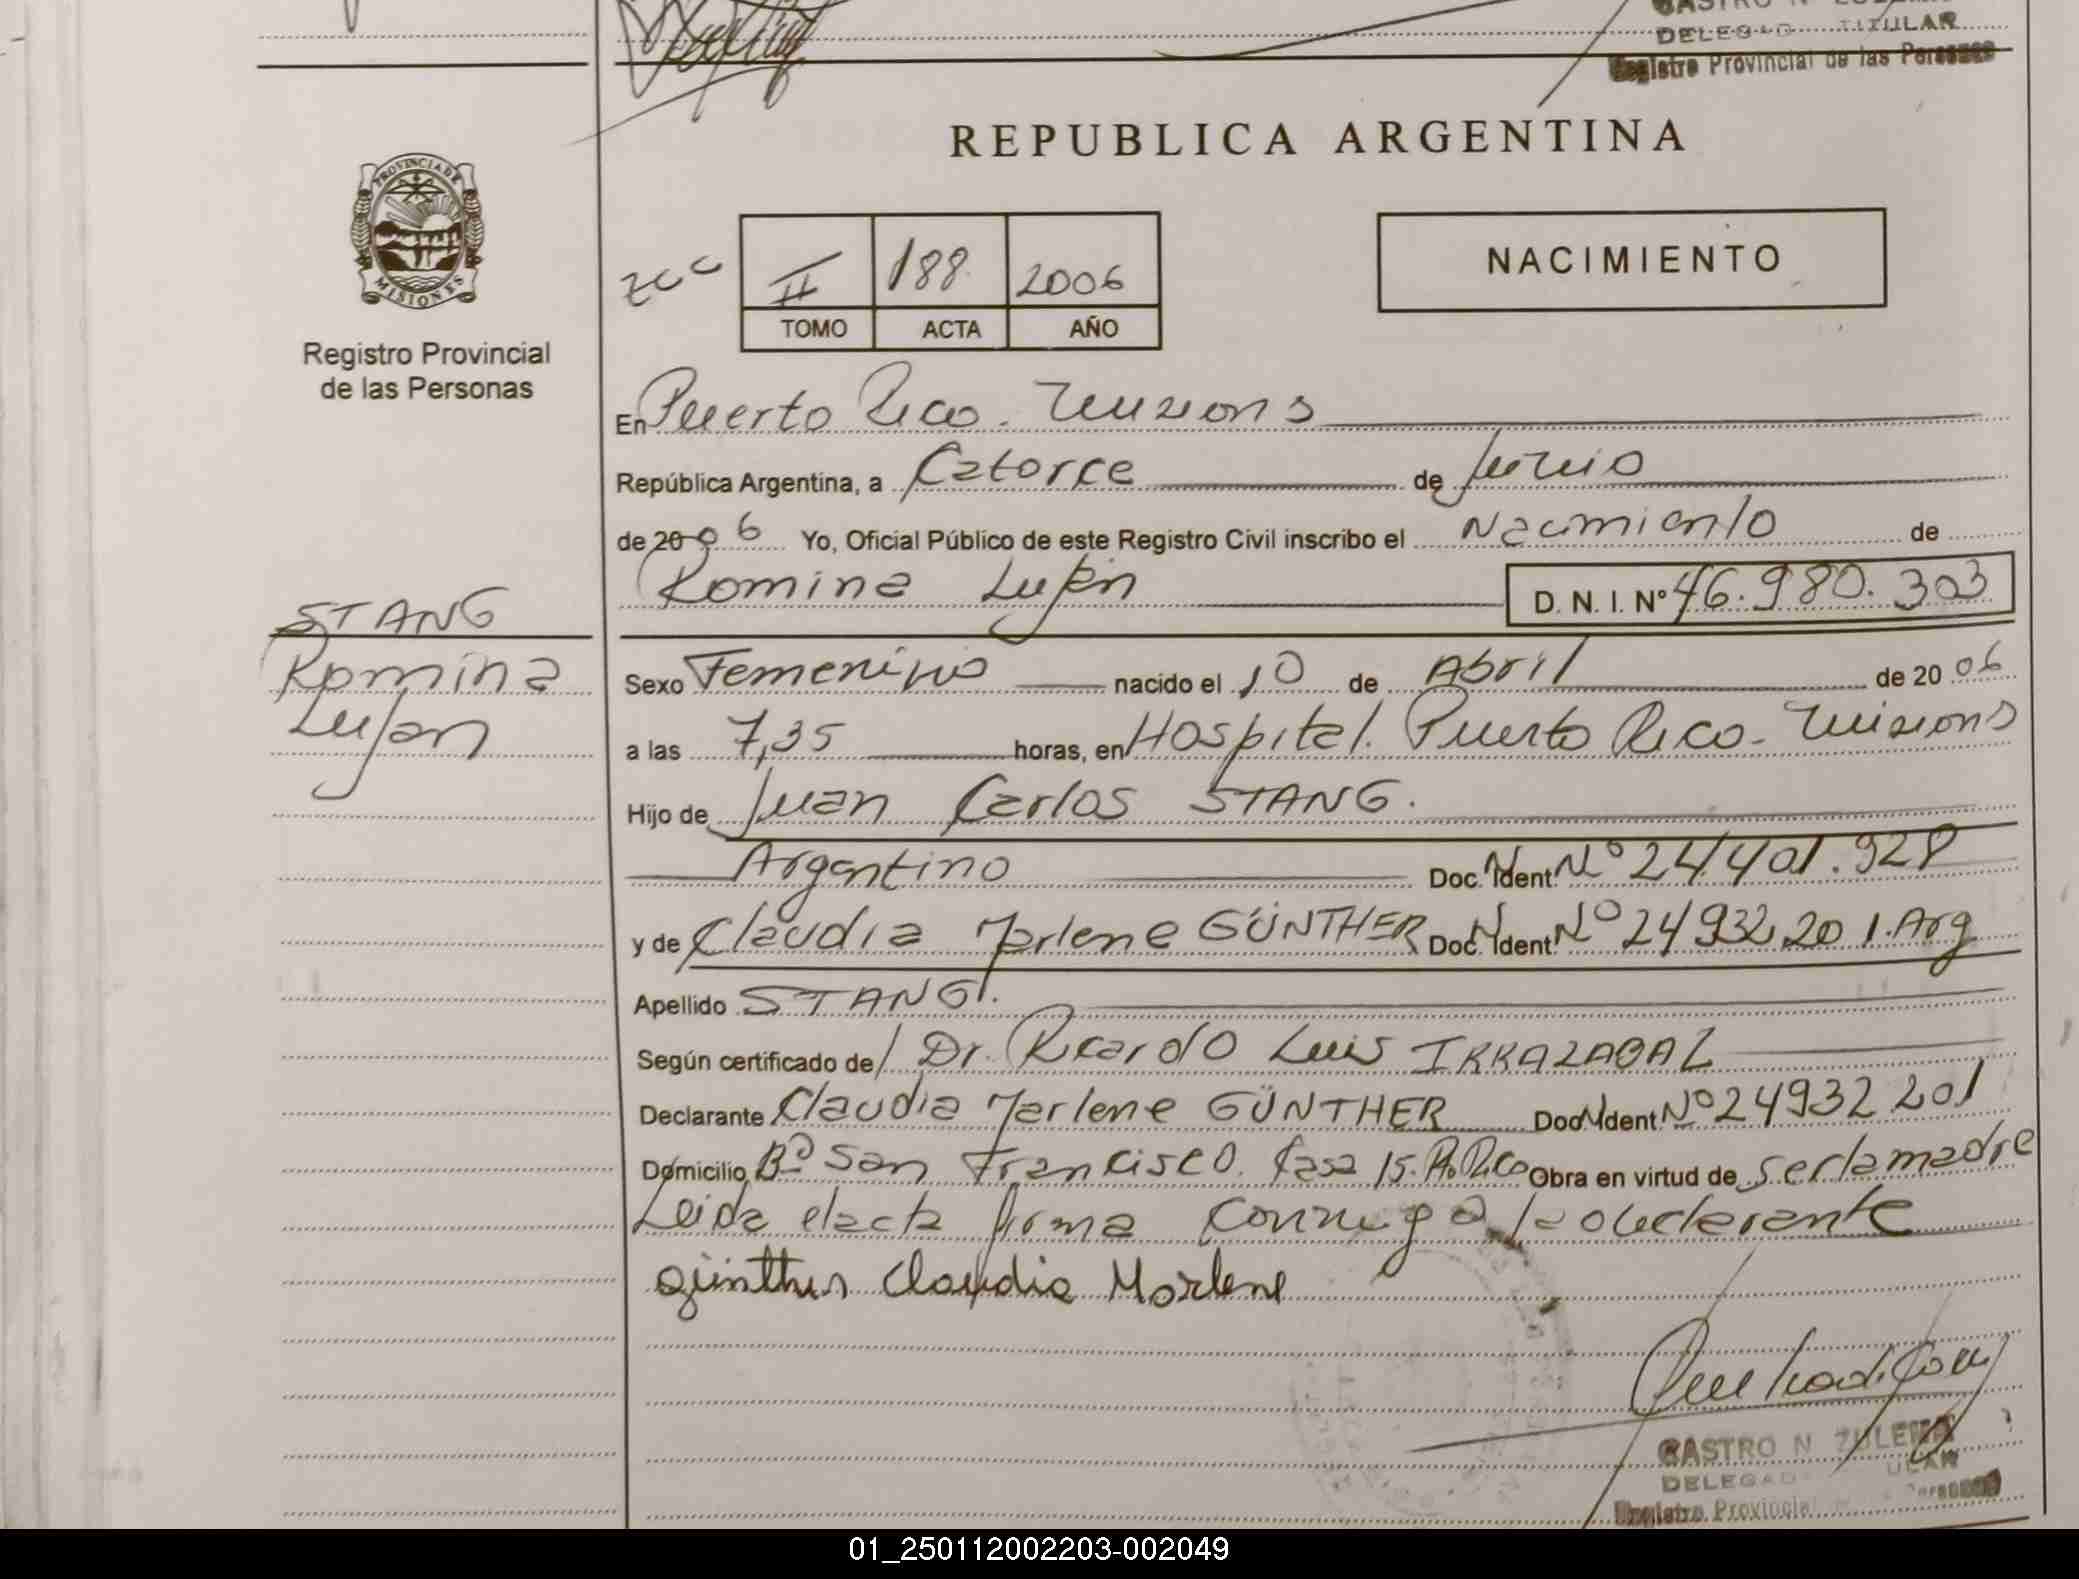 DELEGAD TITULAR
Registro Provincial de las Personas
REPUBLICA ARGENTINA
PROVINCIA DE
MISIONES
Registro Provincial
de las Personas
II 188 2006
TOMO ACTA AÑO
NACIMIENTO
En Puerto Rico. Misiones
República Argentina, a Catorce de Junio
de 2006 Yo, Oficial Público de este Registro Civil inscribo el Nacimiento de
Romina Luján D. N. I. Nº 46.980.303
STANG
Romina
Lujan
Sexo Femenino nacido el 10 de Abril de 2006
a las 7,35 horas, en Hospital. Puerto Rico - Misiones
Hijo de Juan Carlos STANG.
Argentino Doc. Ident. Nº 24.401.928
y de Claudia Marlene GÜNTHER Doc. Ident. Nº 24 932 201. Arg
Apellido STANG.
Según certificado de Dr. Ricardo Luis IRRAZABAL
Declarante Claudia Marlene GÜNTHER Doc. Ident. Nº 24932 201
Domicilio Bº San Francisco. Casa 15. Pto. Rico Obra en virtud de ser la madre
Leida el acta firma conmigo la declarante
Günther Claudia Marlene
CASTRO N ZULEMA
DELEGAD ULAR
Registro Provincial Personas
01_250112002203-002049